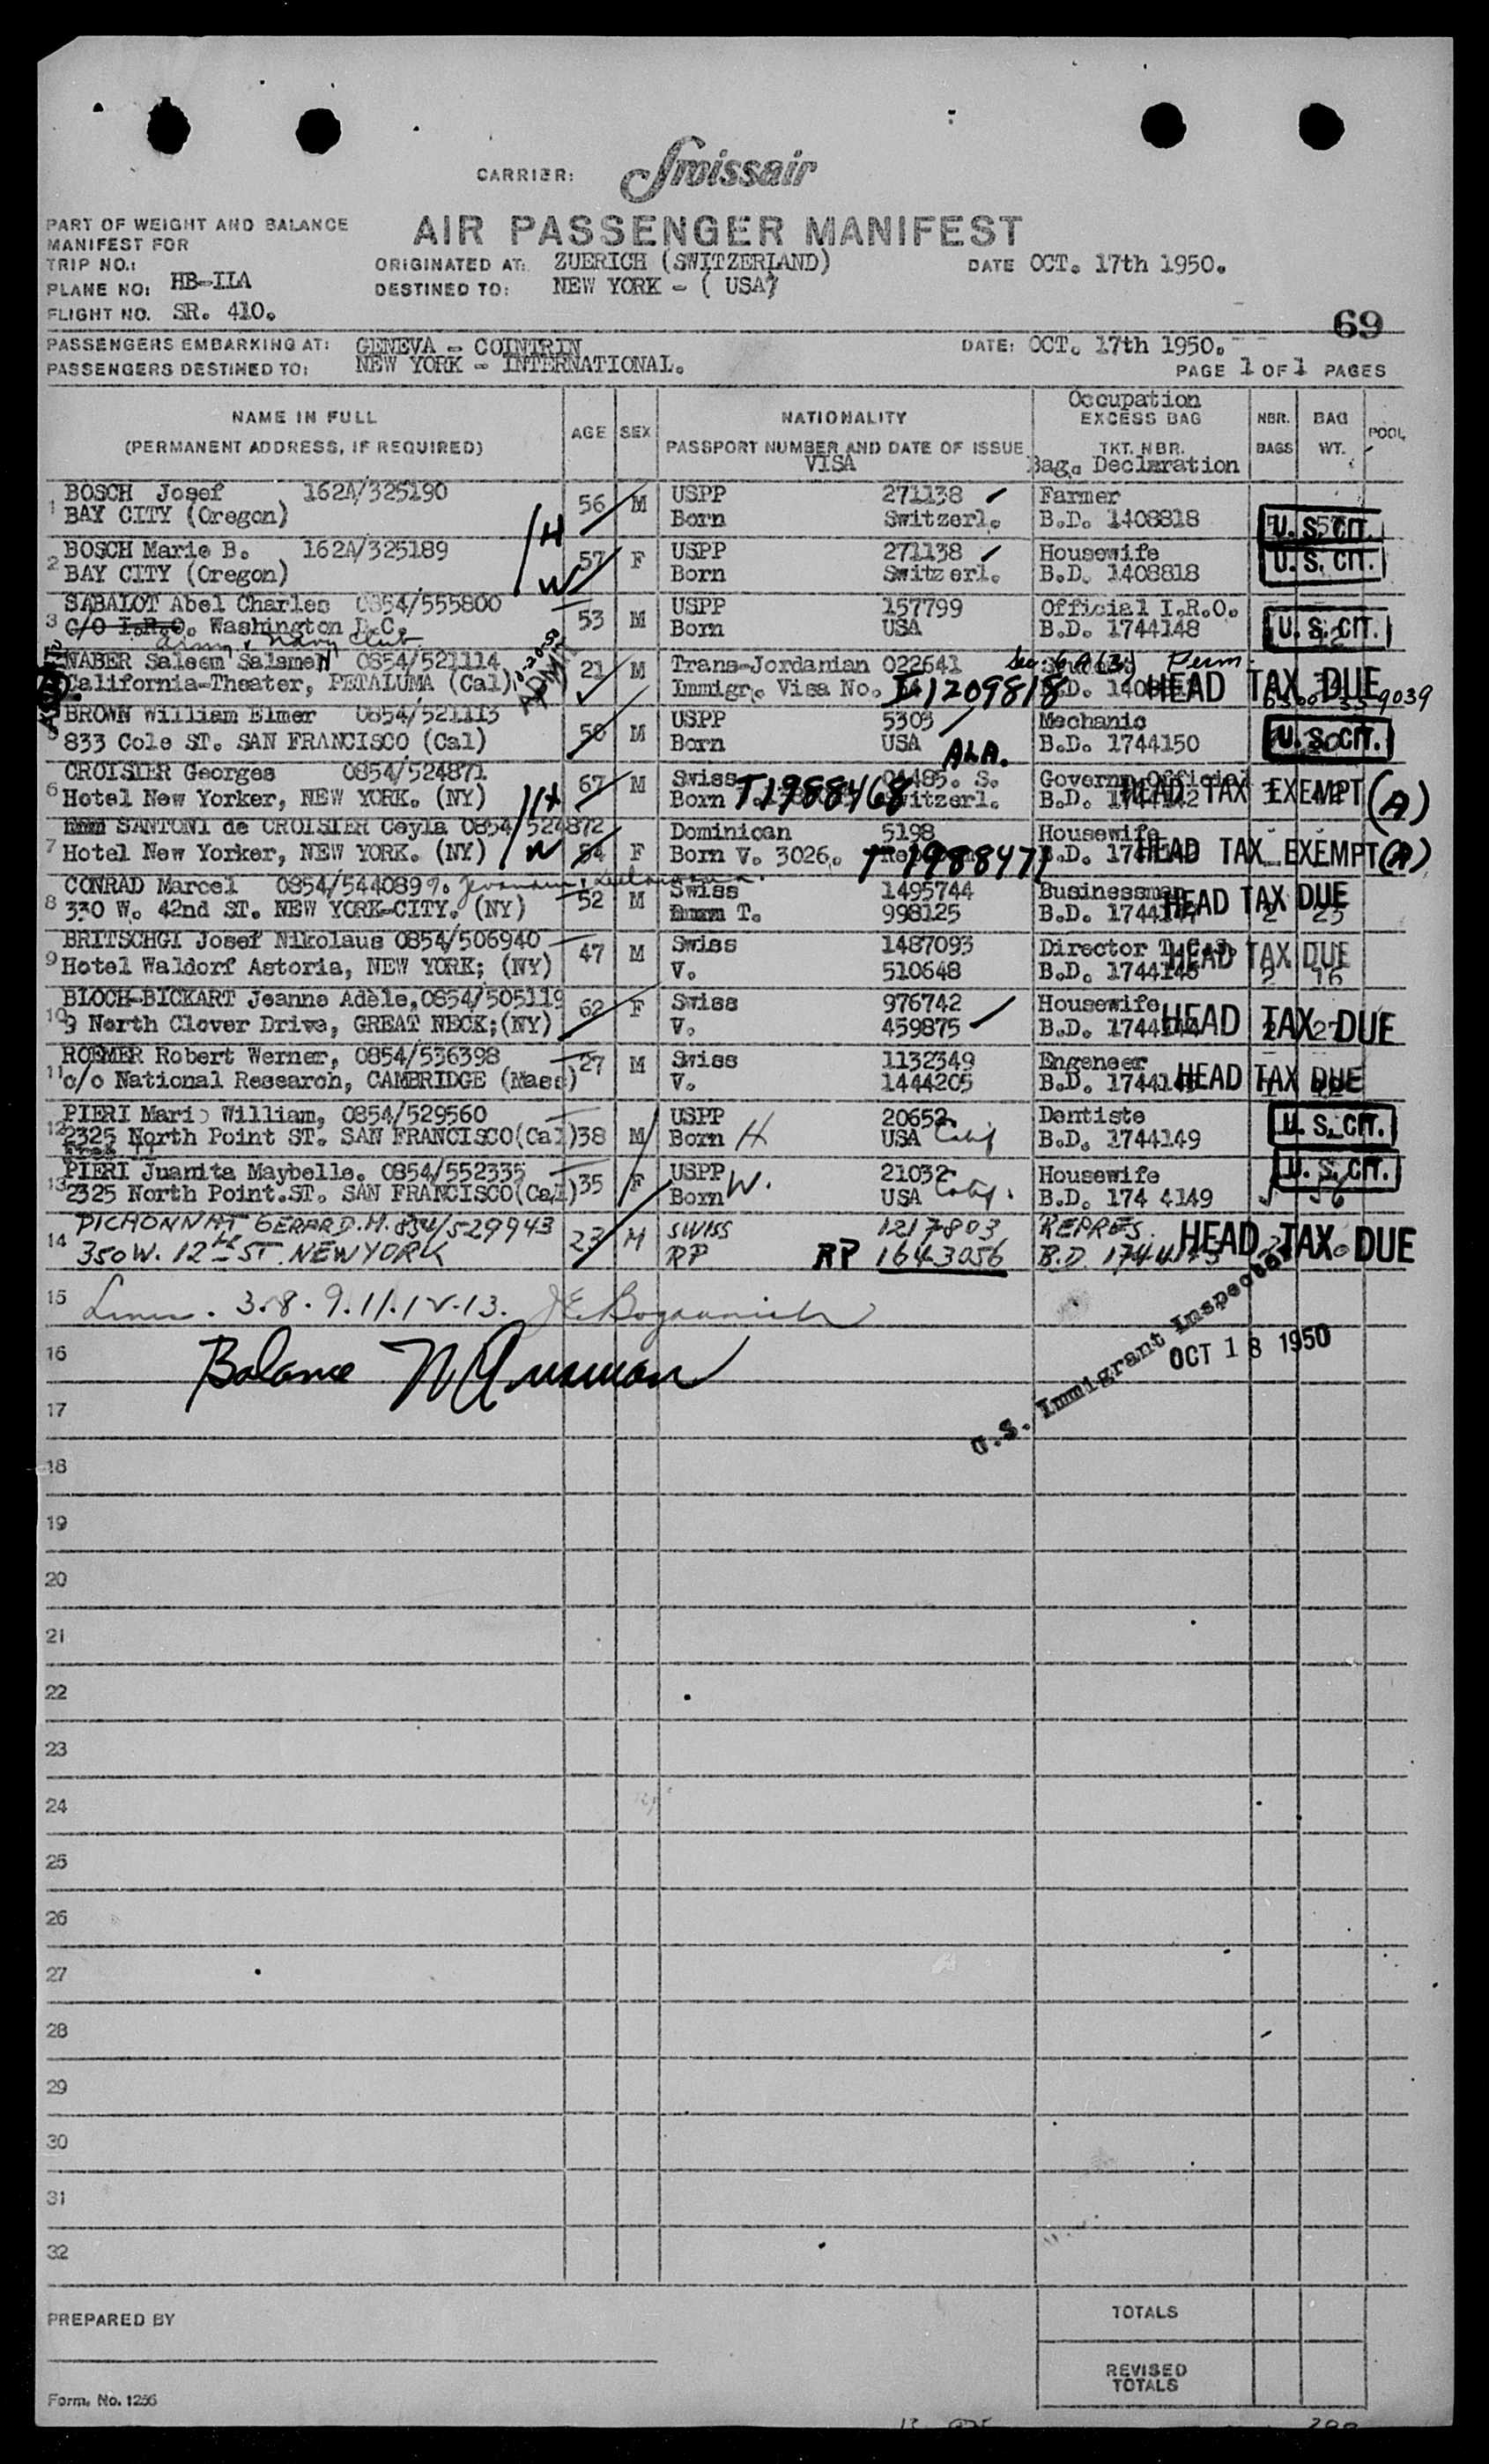 CARRIER: Swissair
PART OF WEIGHT AND BALANCE
MANIFEST FOR
AIR PASSENGER MANIFEST
TRIP NO.: ORIGINATED AT: ZUERICH (SWITZERLAND) DATE OCT. 17th 1950.
PLANE NO: HB-ILA DESTINED TO: NEW YORK - ( USA)
FLIGHT NO. SR. 410.
69
PASSENGERS EMBARKING AT: GENEVA - COINTRIN DATE: OCT. 17th 1950.
PASSENGERS DESTINED TO: NEW YORK - INTERNATIONAL. PAGE 1 OF 1 PAGES
NAME IN FULL AGE SEX NATIONALITY Occupation EXCESS BAG NBR. BAG POOL
(PERMANENT ADDRESS, IF REQUIRED) PASSPORT NUMBER AND DATE OF ISSUE TKT. NBR. BAGS WT.
VISA Bag. Declaration
1 BOSCH Josef 162A/325190 56 M USPP 271138 Farmer
BAY CITY (Oregon) H Born Switzerl. B.D. 1408818 U. S. CIT.
2 BOSCH Marie B. 162A/325189 57 F USPP 271138 Housewife
BAY CITY (Oregon) W Born Switzerl. B.D. 1408818 U. S. CIT.
3 SABALOT Abel Charles 0854/555800 53 M USPP 157799 Official I.R.O.
C/O I.R.O. Washington D.C. Born USA B.D. 1744148 U. S. CIT.
Army & Navy Club
NABER Saleem Salameh 0854/521114 21 M Trans-Jordanian 022641 Sec. 6A(3) Perm.
California-Theater, PETALUMA (Cal) Immigr. Visa No. I 1209818 HEAD TAX DUE
5 BROWN William Elmer 0854/521113 50 M USPP 5303 Mechanic
833 Cole ST. SAN FRANCISCO (Cal) Born USA ALA. B.D. 1744150 U. S. CIT.
6 CROISIER Georges 0854/524871 67 M Swiss 04485. S. Governm. Official
Hotel New Yorker, NEW YORK. (NY) H Born T1988468 Switzerl. B.D. HEAD TAX EXEMPT (A)
7 SANTONI de CROISIER Ceyla 0854/524872 54 F Dominican 5198 Housewife
Hotel New Yorker, NEW YORK. (NY) W Born V. 3026. T 1988471 B.D. HEAD TAX EXEMPT (A)
8 CONRAD Marcel 0854/544089 52 M Swiss 1495744 Businessman
330 W. 42nd ST. NEW YORK-CITY. (NY) T. 998125 B.D. HEAD TAX DUE 2 23
9 BRITSCHGI Josef Nikolaus 0854/506940 47 M Swiss 1487093 Director
Hotel Waldorf Astoria, NEW YORK; (NY) V. 510648 B.D. HEAD TAX DUE 2 16
10 BLOCH-BICKART Jeanne Adèle, 0854/505119 62 F Swiss 976742 Housewife
9 North Clover Drive, GREAT NECK; (NY) V. 459875 B.D. HEAD TAX DUE
11 ROEMER Robert Werner, 0854/536398 27 M Swiss 1132349 Engeneer
c/o National Research, CAMBRIDGE (Mass) V. 1444205 B.D. HEAD TAX DUE
12 PIERI Mario William, 0854/529560 38 M USPP 20652 Dentiste
2325 North Point ST. SAN FRANCISCO(Cal) Born H USA Calif B.D. 1744149 U. S. CIT.
13 PIERI Juanita Maybelle. 0854/552335 35 F USPP 21032 Housewife
2325 North Point.ST. SAN FRANCISCO(Cal) Born W. USA Calif. B.D. 174 4149 U. S. CIT.
14 PICHONNAT GERARD.H. 854/529943 23 M SWISS 1217803 REPRES.
350 W. 12th ST. NEW YORK RP RP 1643056 B.D. HEAD TAX DUE
15 3.8.9.11.12.13.
16 Balance
U.S. Immigrant Inspector
OCT 18 1950
17
18
19
20
21
22
23
24
25
26
27
28
29
30
31
32
PREPARED BY TOTALS
REVISED TOTALS
Form. No. 1256